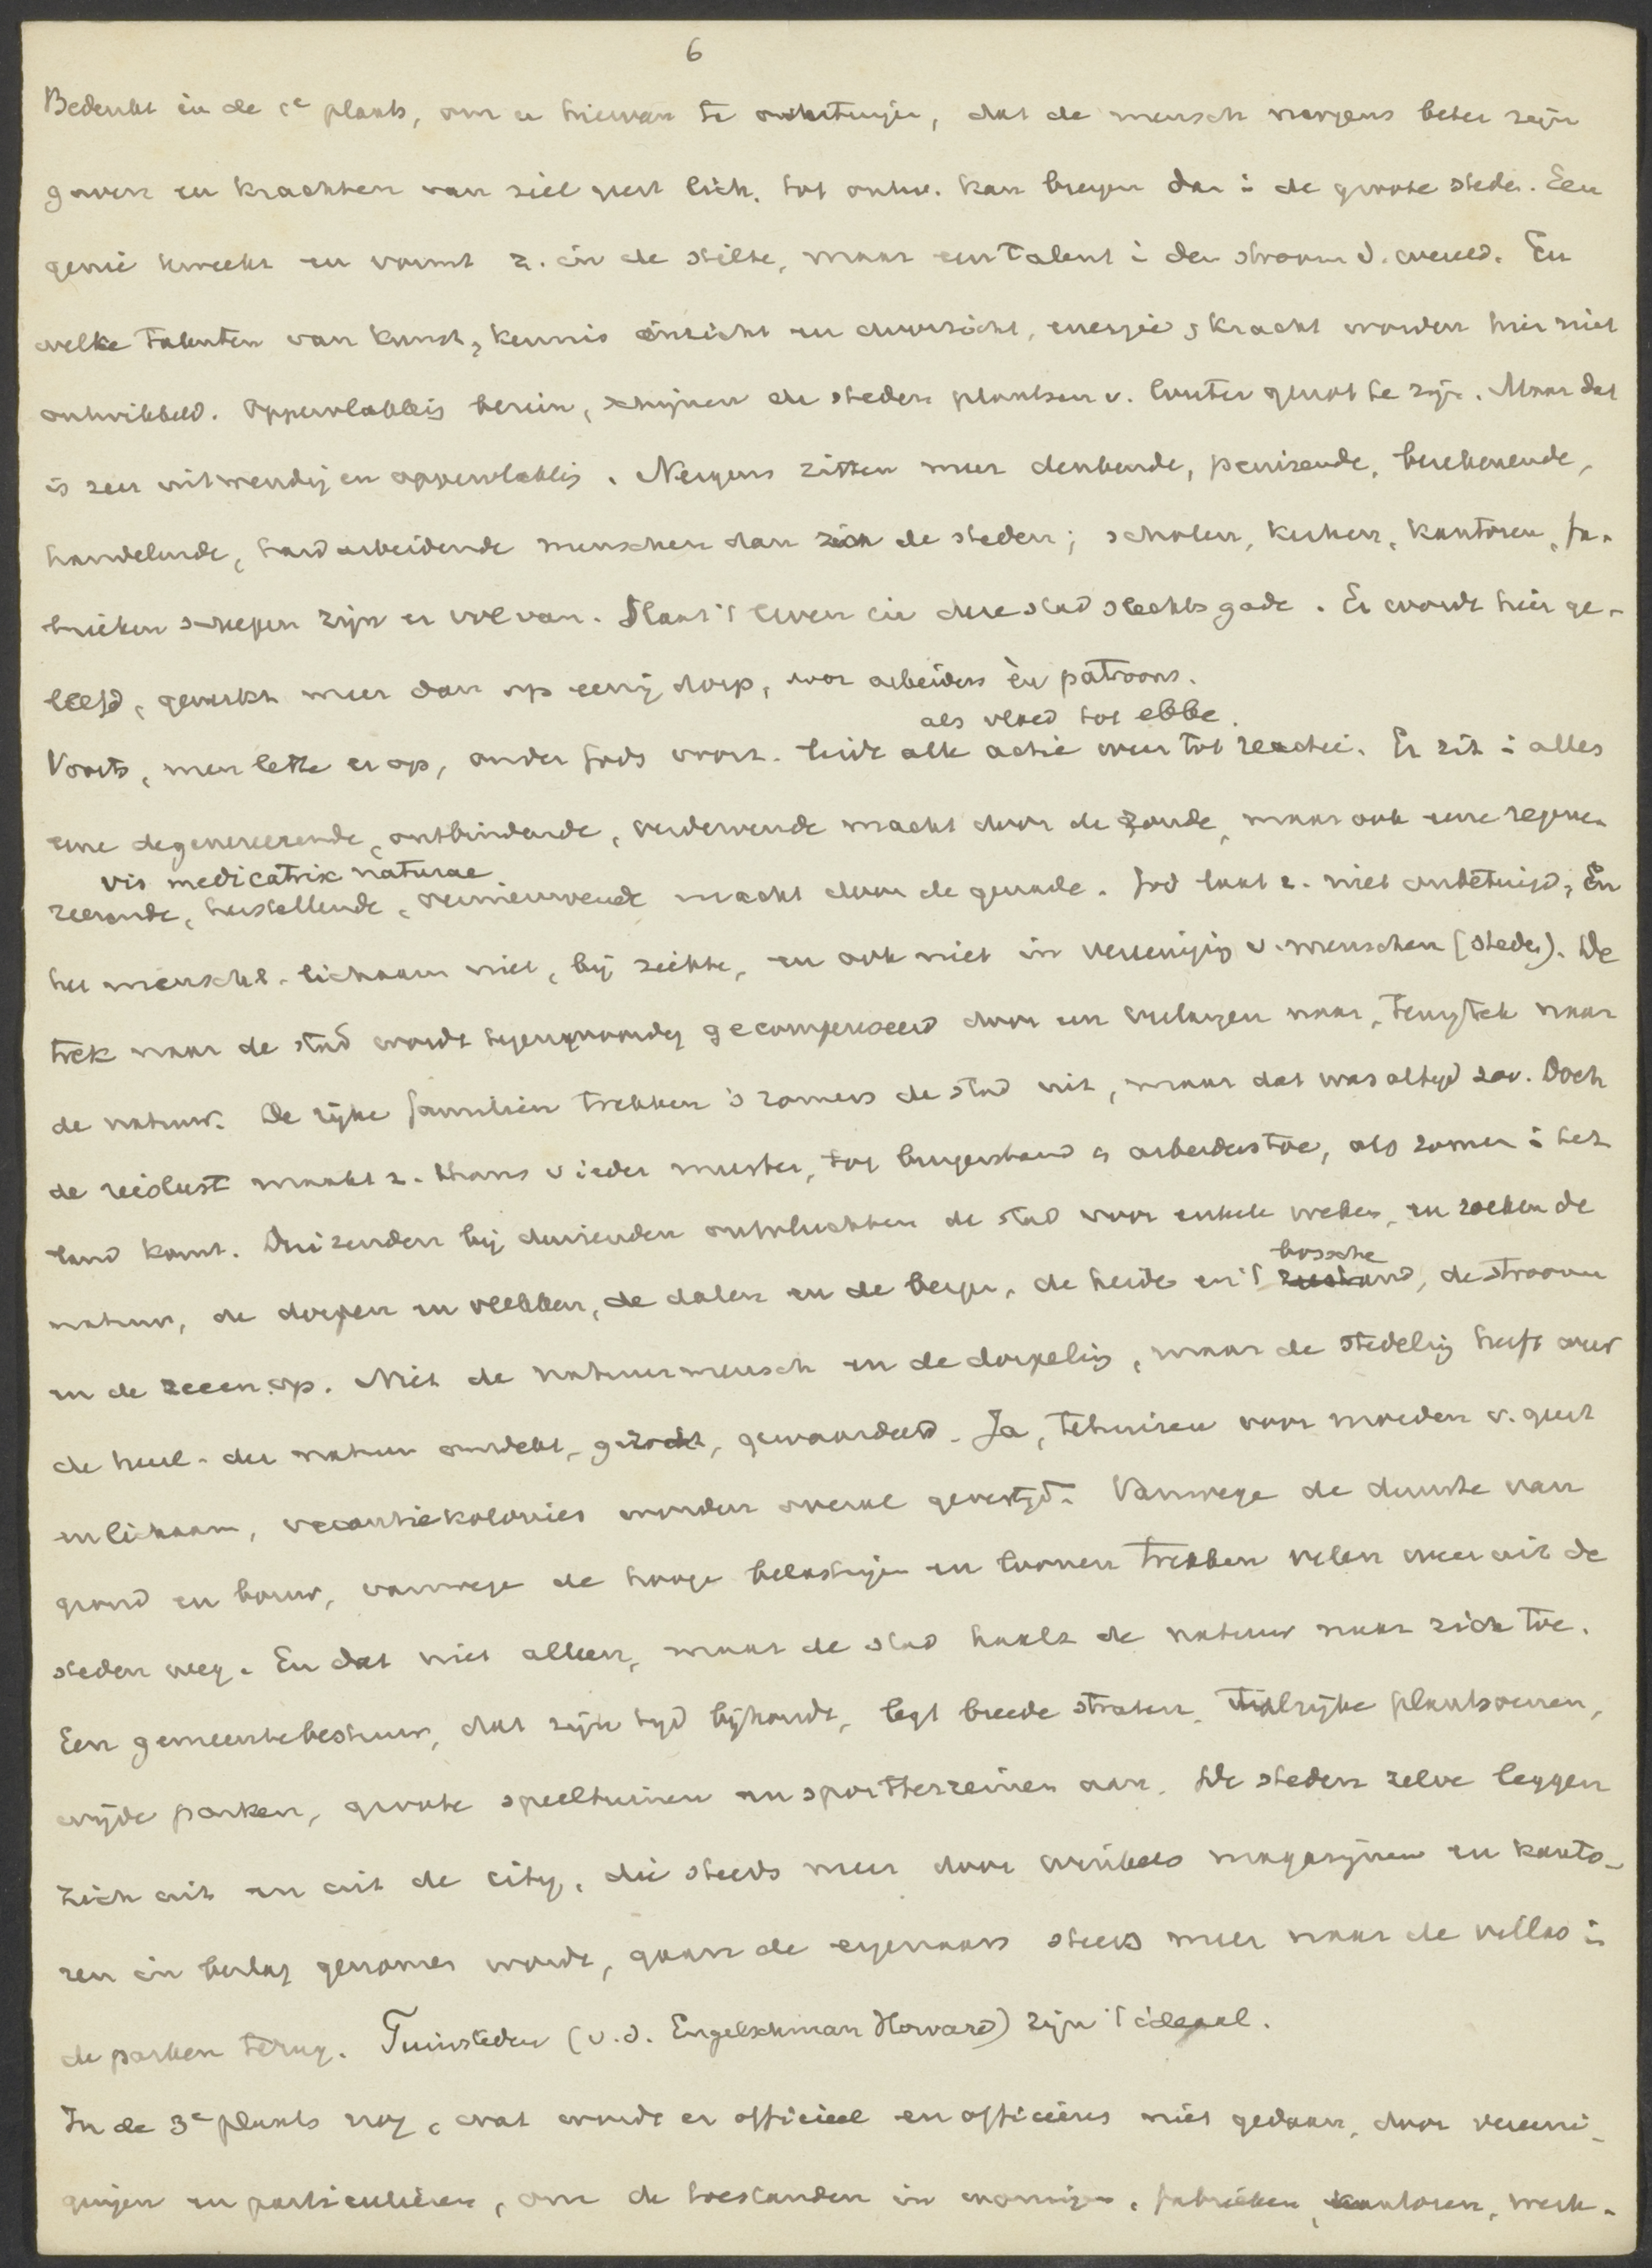 6
Bedenkt in de 1e plaats, om u hiervan te overtuigen, dat de mensch nergens beter zijn
gaven en krachten van ziel geest lich. tot ontw. kan brengen dan i de groote steden. Een
genie kweekt en vormt z. in de stilte, maar een talent i den stroom d. wereld. En
welke talenten van kunst, kennis inzicht en doorzicht, energie, kracht worden hier niet
ontwikkeld. Oppervlakkig bezien, schijnen de steden plaatsen v. louter genot te zijn. Maar dat
is zeer uitwendig en oppervlakkig. Nergens zitten meer denkende, peinzende, berekenende,
handelende, hard arbeidende menschen dan in de steden; scholen, kerken, kantoren, fa-
brieken schepen zijn er vol van. Slaat 't leven in deze stad slechts gade. Er wordt hier ge-
leefd, gewerkt meer dan op eenig dorp, door arbeiders èn patroons.
als vloed tot ebbe.
Voorts, men lette er op, onder Gods voorz. leidt alle actie weer tot reactie. Er zit i alles
eene degenereerende, ontbindende, verdervende macht door de zonde, maar ook eene regene-
vis medicatrix naturae
reerende, herstellende, vernieuwende macht door de genade. God laat z. niet onbetuigd, En
het menschel. lichaam niet, bij ziekte, en ook niet in vereeniging v. menschen (steden). De
trek naar de stad wordt tegenwoordig gecompenseerd door een verlangen naar, terugtrek naar
de natuur. De rijke familien trekken 's zomers de stad uit, maar dat was altijd zoo. Doch
de reislust maakt z. thans v ieder meester, tot burgerstand & arbeiders toe, als zomer i het
land komt. Duizenden bij duizenden ontvluchten de stad voor enkele weken, en zoeken de
bossche
natuur, de dorpen en vlekken, de dalen en de bergen, de heide en 't, de stroomen
en de zeeen op. Niet de natuurmensch en de dorpeling, maar de stedeling heeft weer
de heerl. der natuur ontdekt, gezocht, gewaardeerd. Ja, tehuizen voor moeden v. geest
en lichaam, vacantiekolonies worden overal gevestigd. Vanwege de duurte van
grond en bouw, vanwege de hooge belastingen en loonen trekken velen weer uit de
steden weg. En dat niet alleen, maar de stad haalt de natuur naar zich toe.
Een gemeentebestuur, dat zijn tijd bijhoudt, legt breede straten, talrijke plantsoenen,
wijde parken, groote speeltuinen en sportterreinen aan. De steden zelve leggen
zich uit en uit de city, die steeds meer door winkels magazijnen en kanto-
ren in beslag genomen wordt, gaan de eigenaars steeds meer naar de villas i
de parken terug. Tuinsteden (v. d. Engelschman Howard) zijn 't ideaal.
In de 3e plaats nog, wat wordt er officieel en officieus niet gedaan, door vereeni-
gingen en particulieren, om de toestanden in woningen, fabrieken, kantoren, werk-